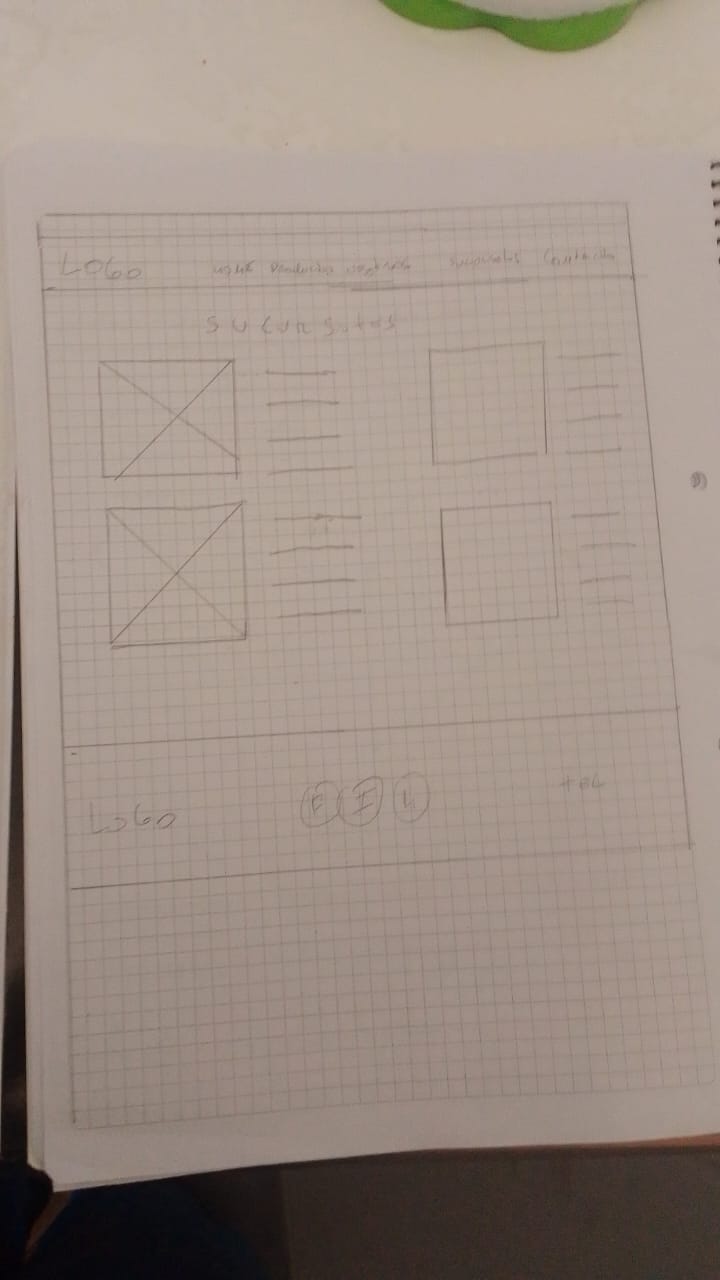 LOGO Productos Nosotros Sucursales Contacto
Sucursales
LOGO F I W tel